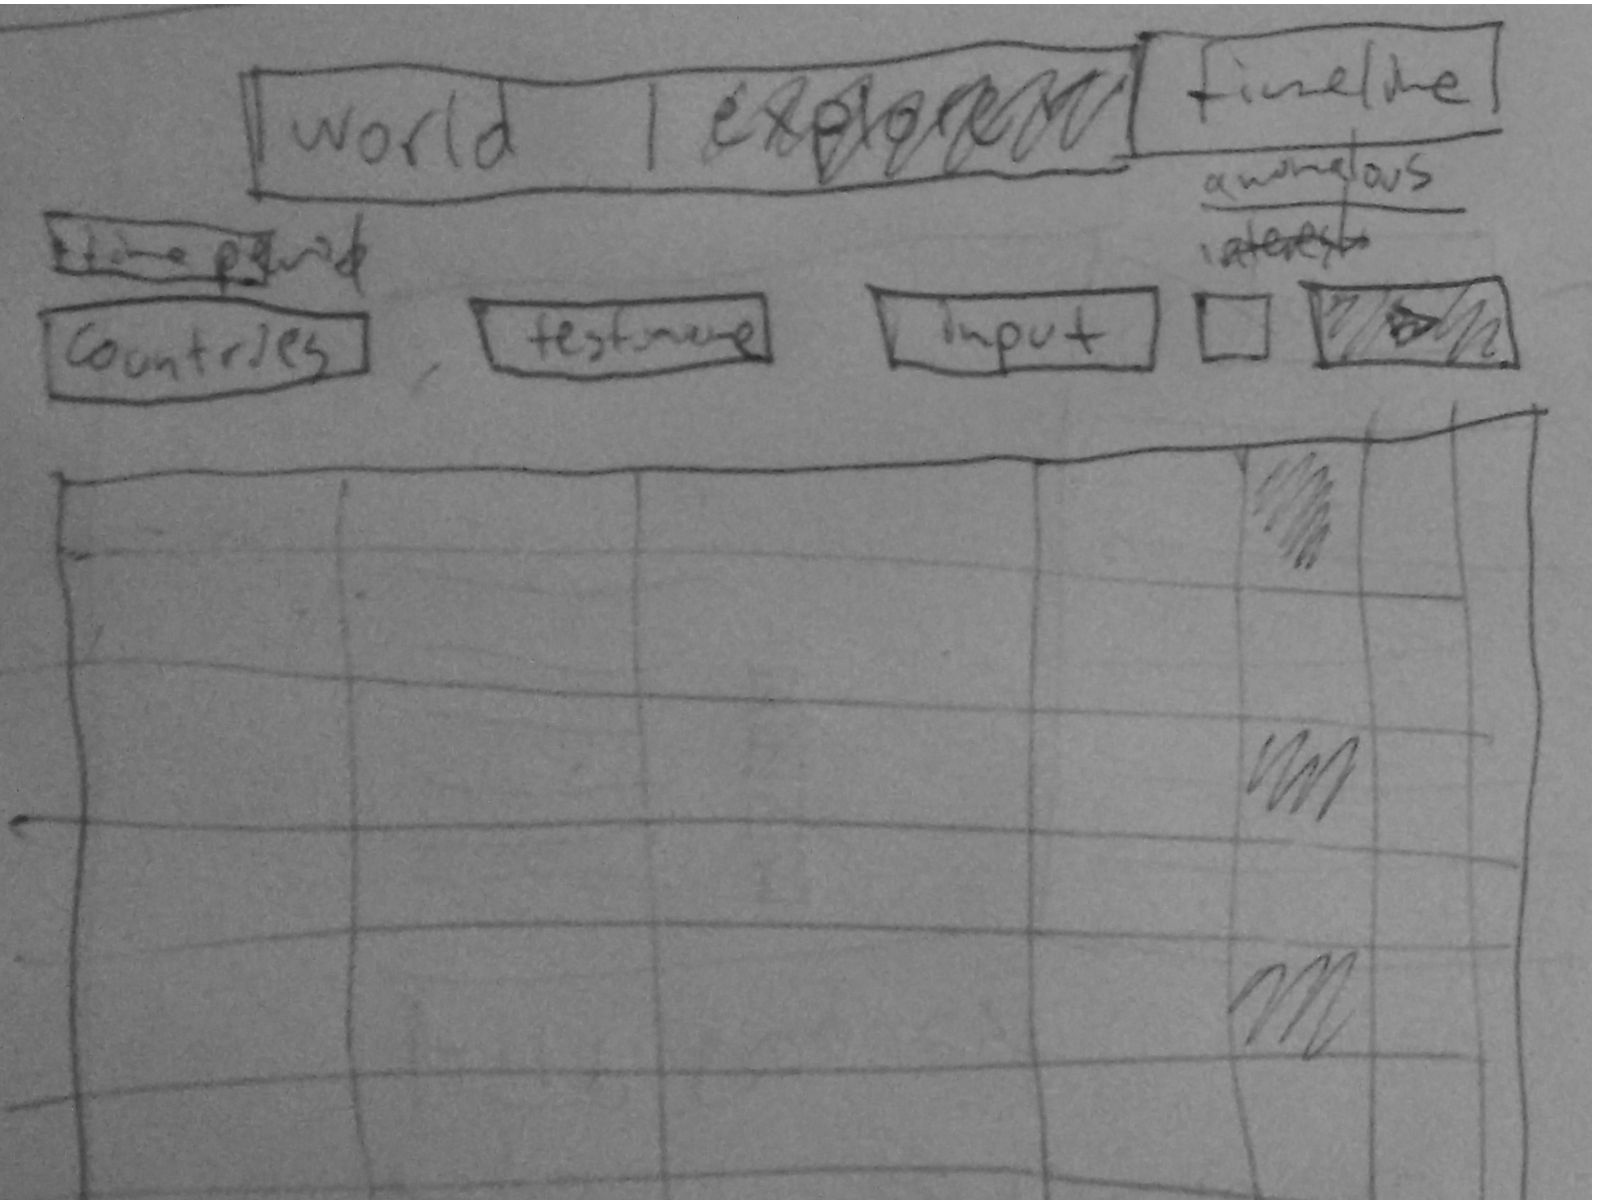 world | explorer timeline
anomalous
time period interest
countries testname input